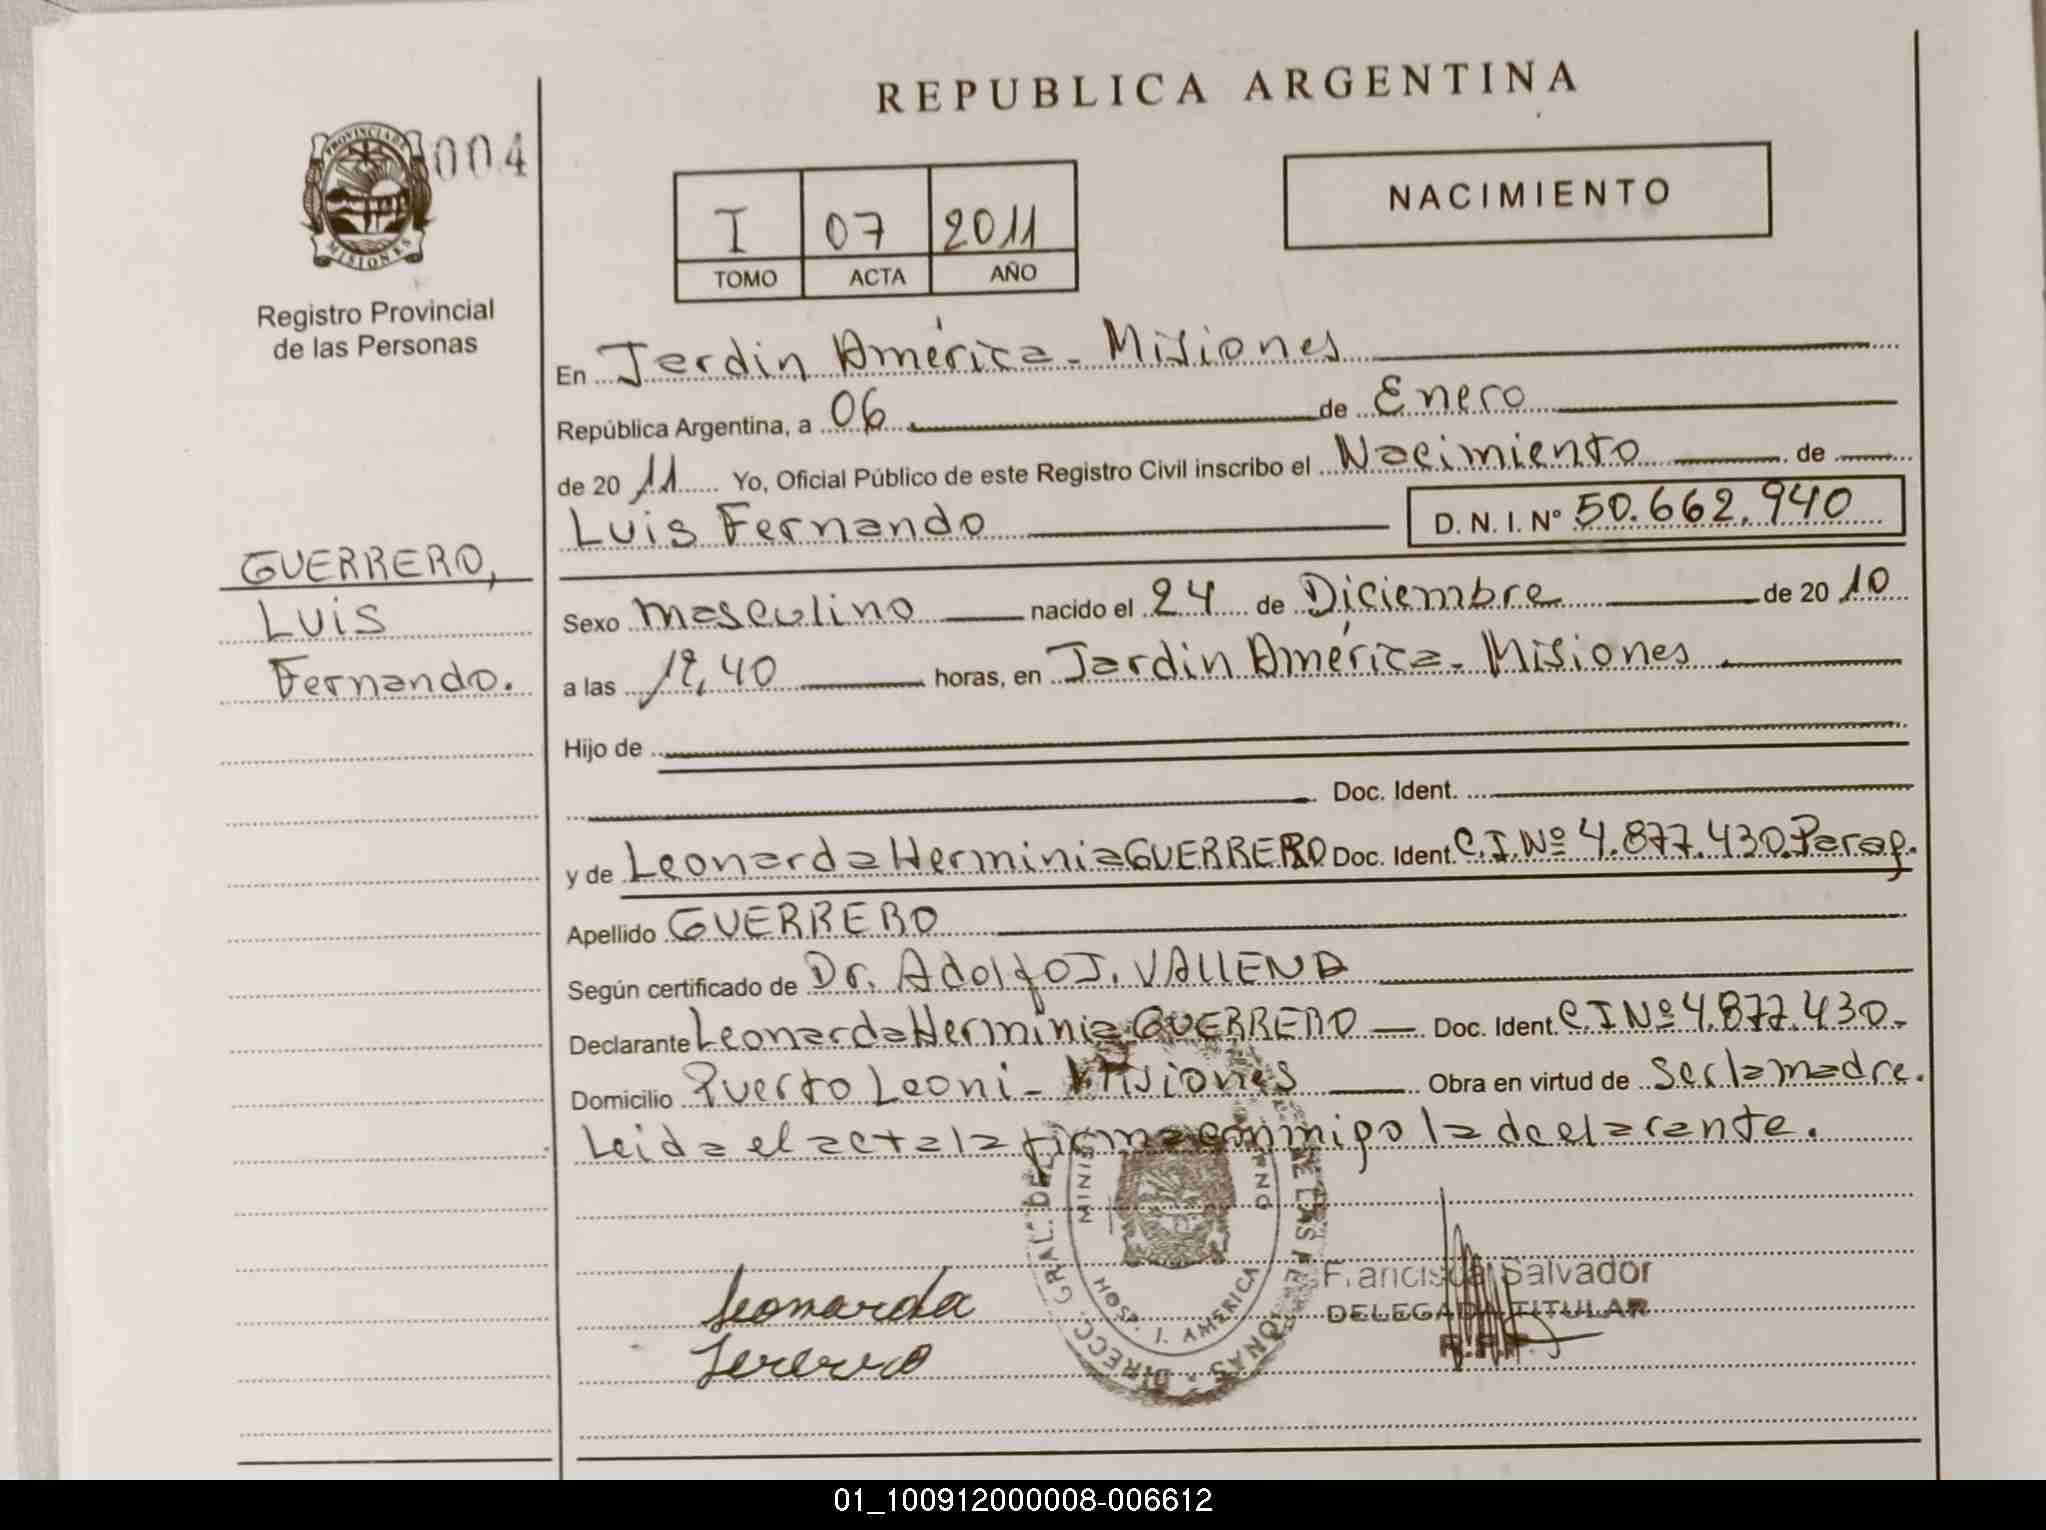 REPUBLICA ARGENTINA
PROVINCIA DE
MISIONES
004
Registro Provincial
de las Personas
I 07 2011
TOMO ACTA AÑO
NACIMIENTO
En Jardin América - Misiones
República Argentina, a 06 de Enero
de 2011 Yo, Oficial Público de este Registro Civil inscribo el Nacimiento de
Luis Fernando D. N. I. Nº 50.662.940
GUERRERO,
Luis
Fernando.
Sexo masculino nacido el 24 de Diciembre de 2010
a las 12,40 horas, en Jardin América - Misiones
Hijo de
Doc. Ident.
y de Leonarda Herminia GUERRERO Doc. Ident. C.I. Nº 4.877.430. Parag.
Apellido GUERRERO
Según certificado de Dr. Adolfo J. VALLENA
Declarante Leonarda Herminia GUERRERO Doc. Ident. C.I Nº 4.877.430.
Domicilio Puerto Leoni - Misiones Obra en virtud de ser la madre.
Leida el acta la firma conmigo la declarante.
DIRECC. GRAL. DE LAS PERSONAS
HOSP. J. AMERICA
Leonarda
Francisca Salvador
DELEGADA TITULAR
R.P.P.
01_100912000008-006612